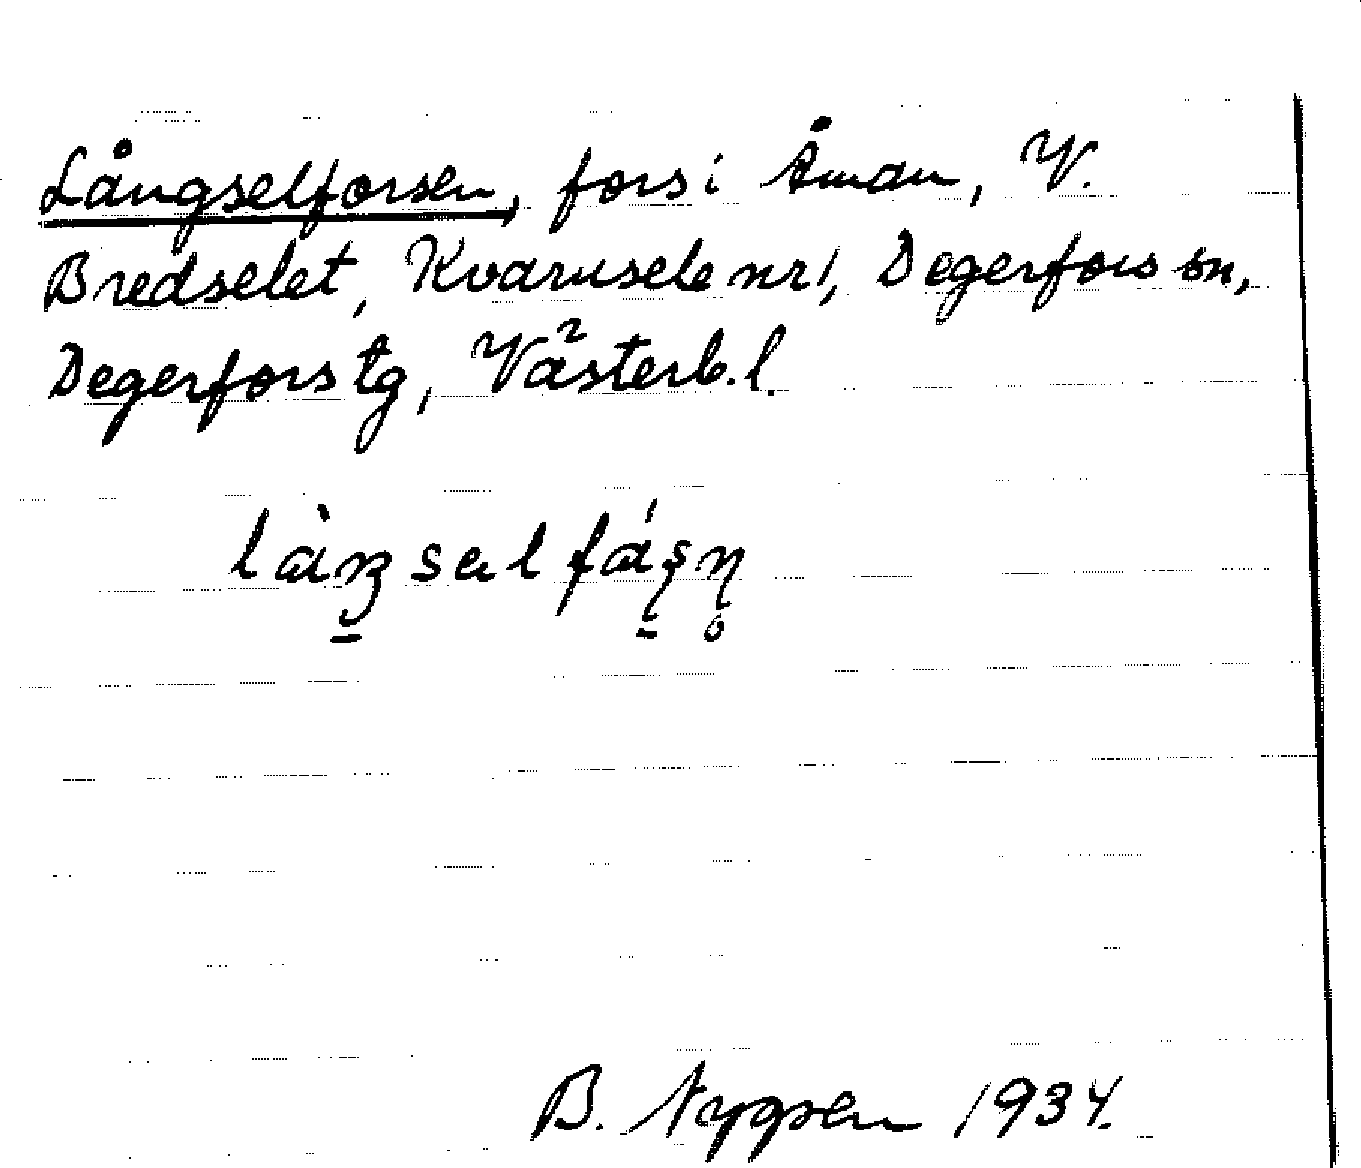 Långselforsen, fors i Åman, V.
Bredselet, Kvarnsele nr 1, Degerfors sn,
Degerfors tg, Västerb. l.
làŋsalfáʂņ̥
B. 1934.